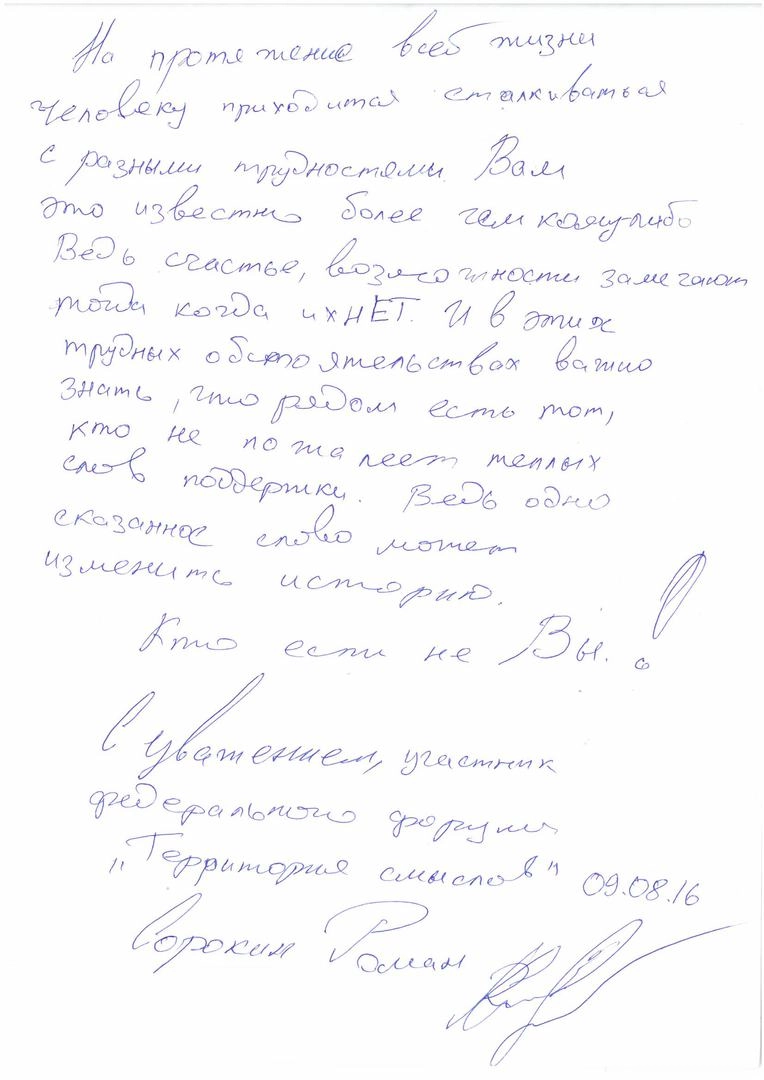 На протяжение всей жизни
человеку приходится сталкиваться
с разными трудностями. Вам
это известно более чем кому-либо
Ведь счастье, возможности замечают
тогда когда их НЕТ. И в этих
трудных обстоятельствах важно
знать, что рядом есть тот,
кто не пожалеет теплых
слов поддержки. Ведь одно
сказанное слово может
изменить историю.
Кто если не Вы.!
С уважением, участник
федерального форума
"Территория смыслов" 09.08.16
Сорокин Роман